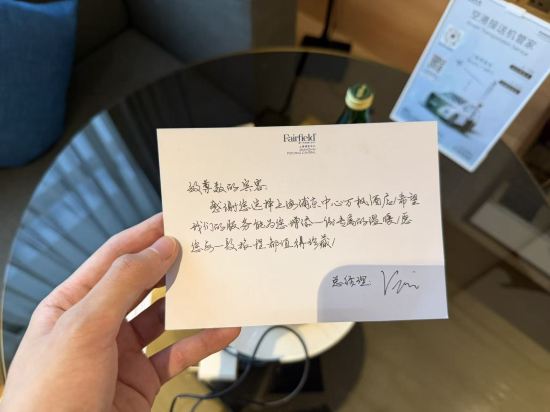 Fairfield
致尊敬的宾客:
感谢您选择上海浦东中心万枫酒店!希望
我们的服务能为您增添一份专属的温暖!愿
您每一段旅程都值得珍藏!
总经理:
空港接送机管家
Airport Transportation Service